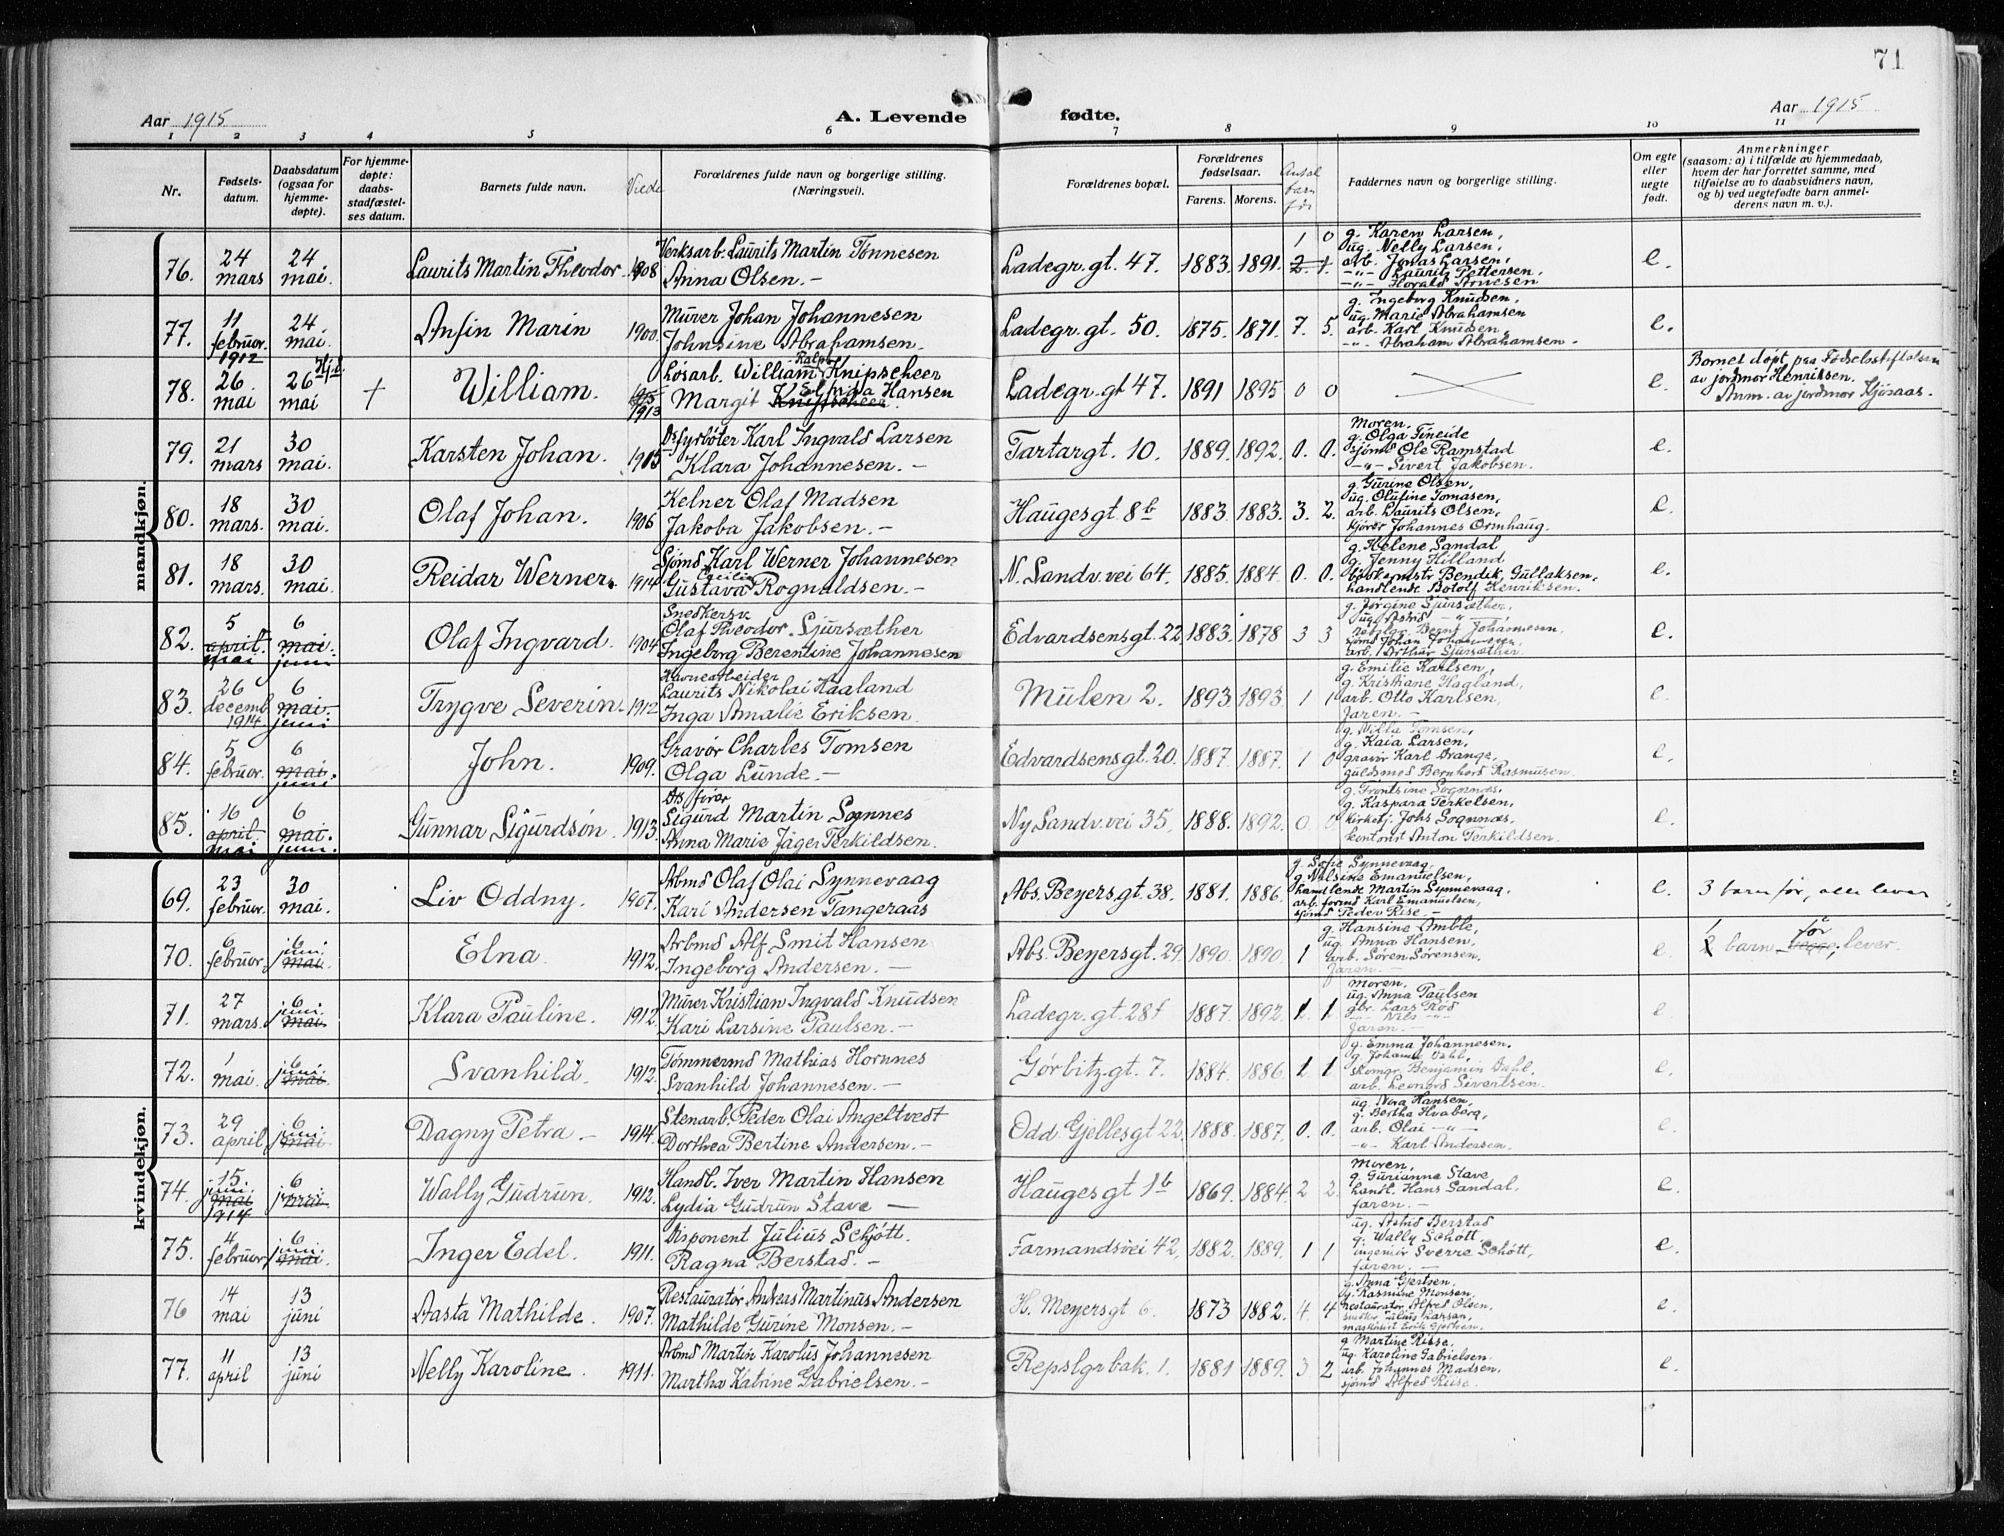 71
Aar 1915
A. Levende fødte.
Aar 1915
1 2 3 4 5 6 7 8 9 10 11
Nr.
Fødsels-
datum.
Daabsdatum
(ogsaa for
hjemme-
døpte).
For hjemme-
døpte:
daabs-
stadfæstel-
ses datum.
Barnets fulde navn.
Viede
Forældrenes fulde navn og borgerlige stilling.
(Næringsvei).
Forældrenes bopæl.
Forældrenes
fødselsaar.
Farens. Morens.
Antal
barn
før
Faddernes navn og borgerlige stilling.
Om egte
eller
uegte
født.
Anmerkninger
(saasom: a) i tilfælde av hjemmedaab,
hvem der har forrettet samme, med
tilføielse av to daabsvidners navn,
og b) ved uegtefødte barn anmel-
derens navn m. v.).
mandkjøn.
76. 24 mars 24. mai. Laurits Martin Theodor. 1908
Verksarb. Laurits Martin Tønnesen
Anna Olsen. –
Ladegr. gt. 47. 1883. 1891. 1 0 2. 1.
g. Karen Larsen,
ug. Nelly Larsen,
arb. Jonas Larsen,
–"– Lauritz Pettersen,
–"– Harald Arnesen
e.
77. 11 februar. 1912 24. mai. Ansin Marin 1900.
Murer Johan Johannesen
Johnsine Abrahamsen.
Ladegr. gt. 50. 1875. 1871. 7. 5.
g. Ingeborg Knudsen,
ug. Marie Abrahamsen
arb. Karl Knudsen,
–"– Abraham Abrahamsen.
e.
78. 26. mai 26 Hj.d. mai + William. 1915 1913
Løsarb. William Ralph Knipscheer
Margit Knipscheer Elfrida Hansen
Ladegr. gt 47. 1891 1895 0 0
e
Barnet døpt paa Fødselsstiftelsen
av jordmor Henriksen.
Anm. av jordmor Kjøsaas.
79. 21 mars 30 mai. Karsten Johan. 1915
Ds. fyrbøter Karl Ingvald Larsen
Klara Johannesen. –
Tartargt. 10. 1889. 1892. 0. 0.
Moren.
g. Olga Fineide
sjømd Ole Ramstad
–"– Sivert Jakobsen.
e.
80. 18 mars. 30 mai. Olaf Johan. 1906
Kelner Olaf Madsen
Jakoba Jakobsen. –
Hauges gt. 8b 1883. 1883. 3. 2.
g. Gurine Olsen,
ug. Olufine Tomasen,
arb. Laurits Olsen,
kjører Johannes Ormhaug.
e.
81. 18 mars. 30 mai. Reidar Werner. 1914
Sjømd Karl Werner Johannesen
Gustava Cecilie Rognaldsen. –
N. Sandv. vei 64. 1885. 1884. 0. 0.
g. Helene Sandal
g. Jenny Hilland
bødkermstr Bendik Gullaksen,
handlende Botolf Henriksen.
e.
82. 5 april. mai 6 mai. juni Olaf Ingvard. 1904
Snedkersv.
Olaf Theodor Sjursæther
Ingeborg Berentine Johannesen
Edvardsens gt. 22 1883. 1878 3 3
g. Jørgine Sjursæther,
ug. Astrid –"–
rebslgr. Bernt Johannesen
sjømd Johan Johannesen
arb. Arthur Sjursæther.
e.
83. 26 decemb. 1914 6 mai. juni Trygve Severin. 1912
Havnearbeider
Laurits Nikolai Haaland
Inga Amalie Eriksen.
Mulen 2. 1893. 1893. 1 1
g. Emilie Karlsen,
g. Kristiane Hagland,
arb. Otto Karlsen,
Faren. –
e
84. 5 februar. 6 mai. juni John. 1909.
Gravør Charles Tomsen
Olga Lunde. –
Edvardsens gt. 20. 1887. 1887. 1 0
g. Villa Tomsen,
g. Kaia Larsen,
gravør Karl Drange,
guldsmed Bernhard Rasmusen.
e.
85. 16 april. mai 6 mai. juni. Gunnar Sigurdsøn. 1913.
Ds fører
Sigurd Martin Sognnes
Anna Marie Jäger Terkildsen.
Ny Sandv. vei 35. 1888. 1892. 0. 0
g. Frontsine Sognnæs,
g. Kaspara Terkelsen,
kirketj. Johs Sognnæs,
kontorist Anton Terkildsen.
e.
kvindekjøn.
69. 23 februar. 30 mai. Liv Oddny. 1907.
Arbmd Olaf Olai Synnevaag
Kari Andersen Tangeraas
Abs. Beyers gt. 38. 1881. 1886.
g. Sofie Synnevaag,
g. Nilsine Emanuelsen,
handlende Martin Synnevaag,
arb. formd Karl Emanuelsen,
sjømd Peder Rise. –
e.
3 barn før, alle lever
70. 6 februar. 6 juni. mai Elna. 1912.
Arbmd Alf Smit Hansen
Ingeborg Andersen. –
Abs. Beyers gt. 29. 1890. 1890. 1
g. Hansine Amble,
ug. Anna Hansen,
arb. Søren Sørensen,
Faren. –
e.
1 2 barn før begge, lever.
71. 27 mars. 6 juni. mai Klara Pauline. 1912.
Murer Kristian Ingvald Knudsen
Kari Larsine Paulsen. –
Ladegr. gt. 28f 1887. 1892. 1. 1
Moren.
ug. Anna Paulsen
gbr. Lars Røs
–"– Nils –"–
Faren. –
e
72. 1 mai. 6 juni. mai Svanhild. 1912.
Tømmermd Mathias Hornnes
Svanhild Johannesen. –
Gørbitz gt. 7. 1884. 1886. 1 1
g. Emma Johannesen.
g. Johanne Dahl,
skomgr Benjamin Dahl,
arb. Leonard Sivertsen.
e.
73. 29 april. 6 juni. mai Dagny Petra – 1914.
Stenarb. Peder Olai Angeltvedt
Dorthea Bertine Andersen. –
Odd Gjelles gt 22. 1888. 1887. 0. 0.
ug. Nora Hansen,
g. Bertha Hvaberg,
arb. Olai –"–
–"– Karl Andersen.
e.
74. 15. juni. mai 1914 6 juni. mai Wally Gudrun. 1912.
Handl. Iver Martin Hansen
Lydia Gudrun Stave –
Hauges gt 1b 1869. 1884. 2 2.
Moren,
g. Gurianne Stave
handl. Hans Sandal,
faren. –
e.
75. 4 februar. 6 juni. mai. Inger Edel. 1911.
Disponent Julius Schjøtt
Ragna Berstad. –
Formandsvei 42, 1882. 1889. 1 1
ug. Astrid Berstad
g. Wally Schøtt
ingeniør Sverre Schøtt,
faren. –
e.
76 14 mai 13 juni Aasta Mathilde. 1907.
Restauratør Andreas Martinus Andersen
Mathilde Gurine Monsen. –
H. Meyers gt 6. 1873 1882. 4 4
g. Anna Gjertsen,
g. Rasmine Monsen,
restauratør Alfred Olsen,
snedker Julius Larsen,
maskinist Erik Gjertsen.
e.
77. 11 april 13 juni Nelly Karoline. 1911.
Arbmd Martin Karolus Johannesen
Martha Katrine Gabrielsen. –
Repslgrbak. 1. 1881 1889. 3 2
g. Martine Riise,
ug. Karoline Gabrielsen
arb. Johannes Madsen,
sjømd Alfred Riise.
e.